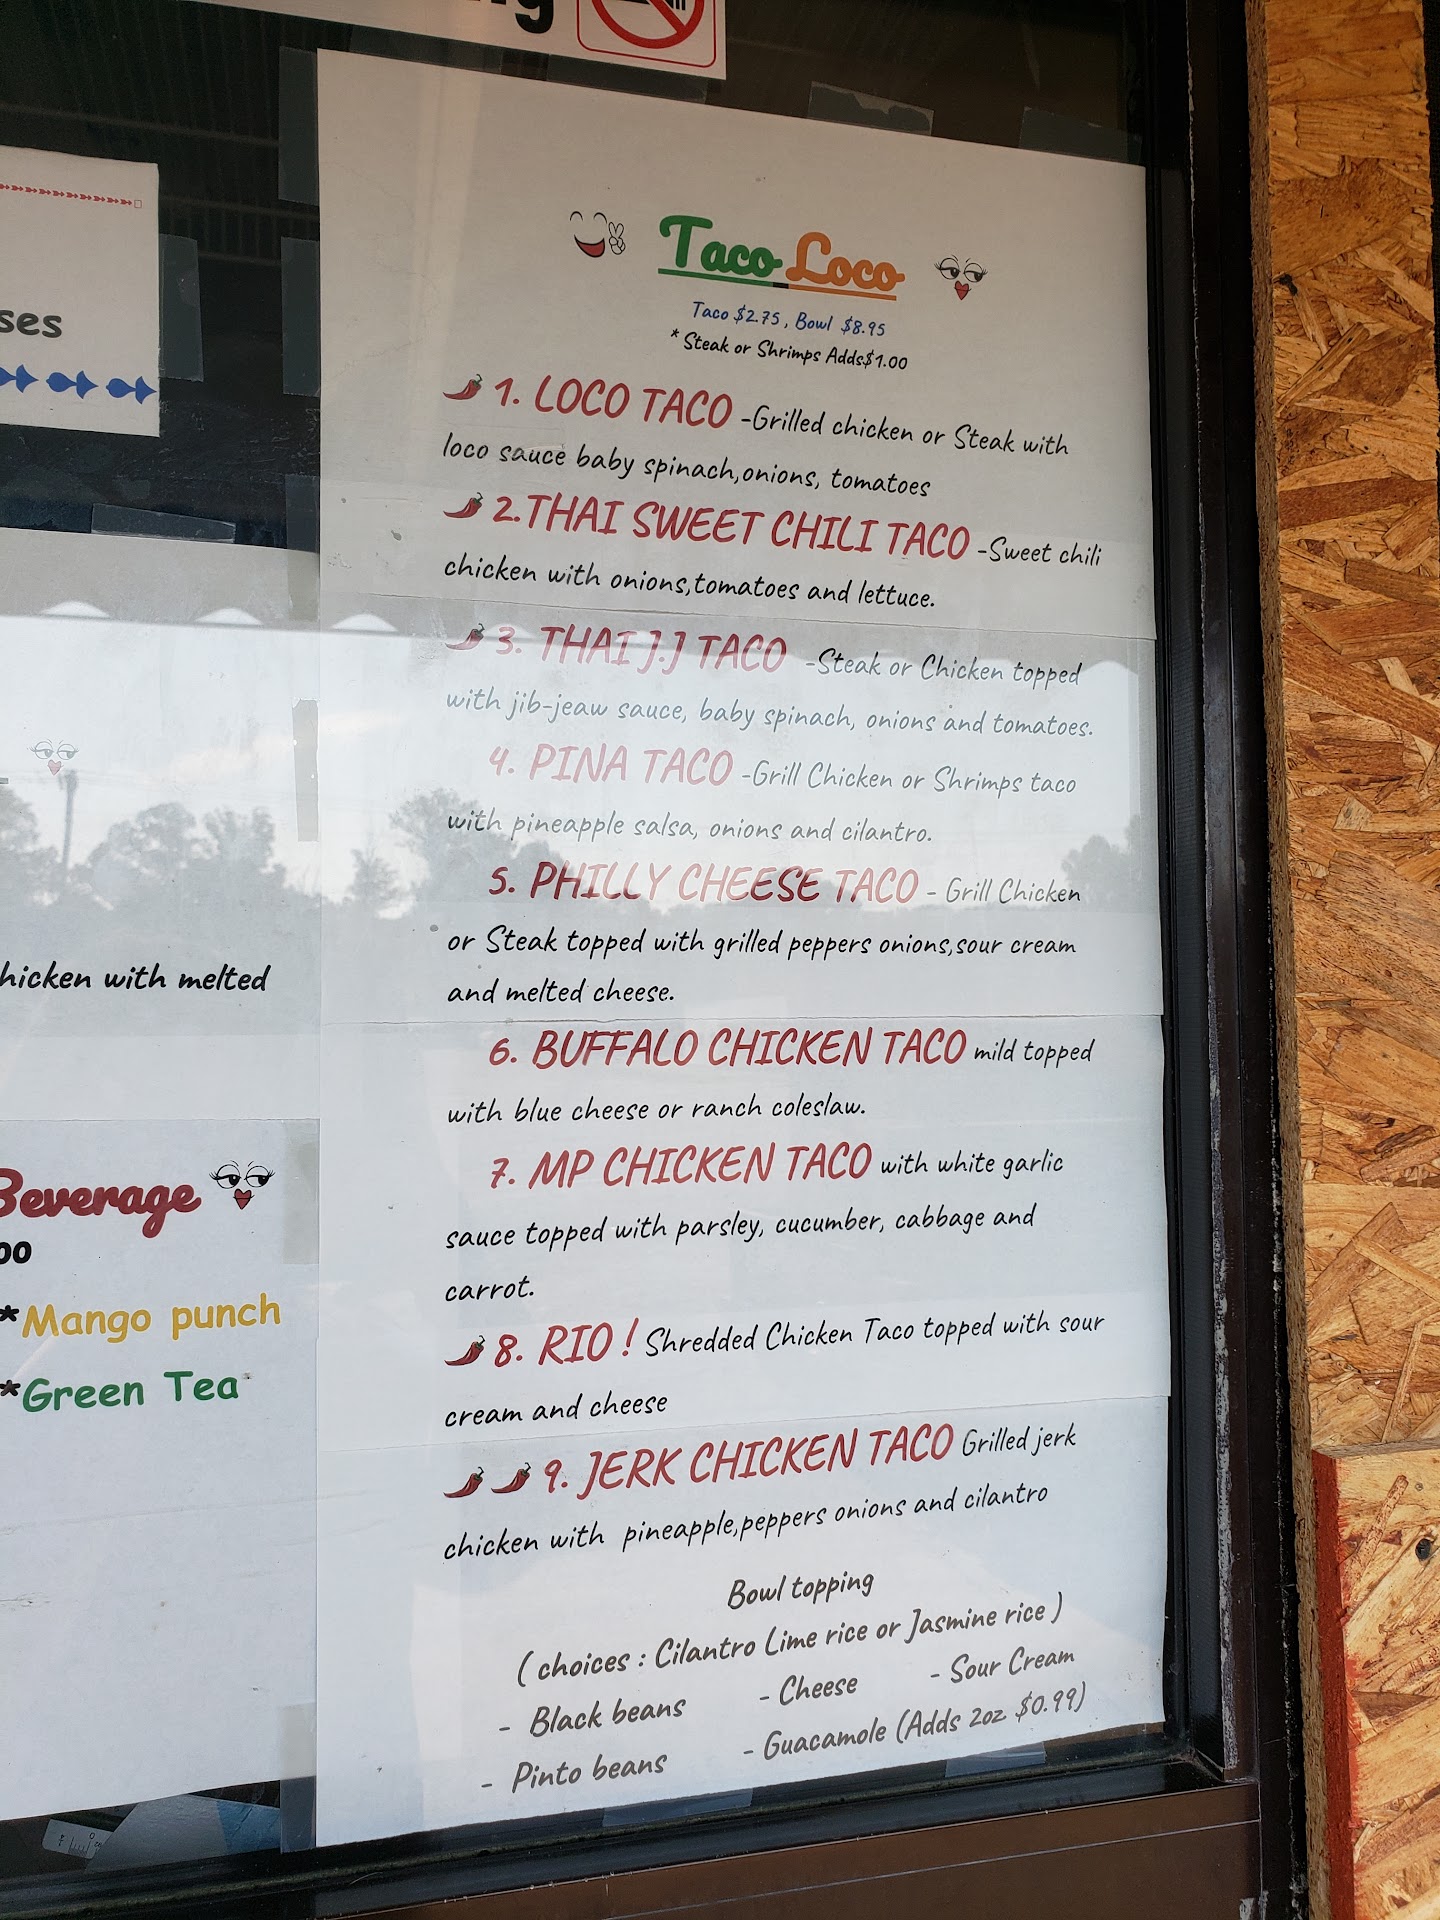 ses
hicken with melted
Beverage
00
*Mango punch
*Green Tea
Taco Loco
Taco $2.75, Bowl $8.95
* Steak or Shrimps Adds$1.00
1. LOCO TACO -Grilled chicken or Steak with
loco sauce baby spinach,onions, tomatoes
2.THAI SWEET CHILI TACO -Sweet chili
chicken with onions,tomatoes and lettuce.
3. THAI J.J TACO -Steak or Chicken topped
with jib-jeaw sauce, baby spinach, onions and tomatoes.
4. PINA TACO -Grill Chicken or Shrimps taco
with pineapple salsa, onions and cilantro.
5. PHILLY CHEESE TACO - Grill Chicken
or Steak topped with grilled peppers onions,sour cream
and melted cheese.
6. BUFFALO CHICKEN TACO mild topped
with blue cheese or ranch coleslaw.
7. MP CHICKEN TACO with white garlic
sauce topped with parsley, cucumber, cabbage and
carrot.
8. RIO ! Shredded Chicken Taco topped with sour
cream and cheese
9. JERK CHICKEN TACO Grilled jerk
chicken with pineapple,peppers onions and cilantro
Bowl topping
( choices : Cilantro Lime rice or Jasmine rice )
- Black beans - Cheese - Sour Cream
- Pinto beans - Guacamole (Adds 2oz $0.99)